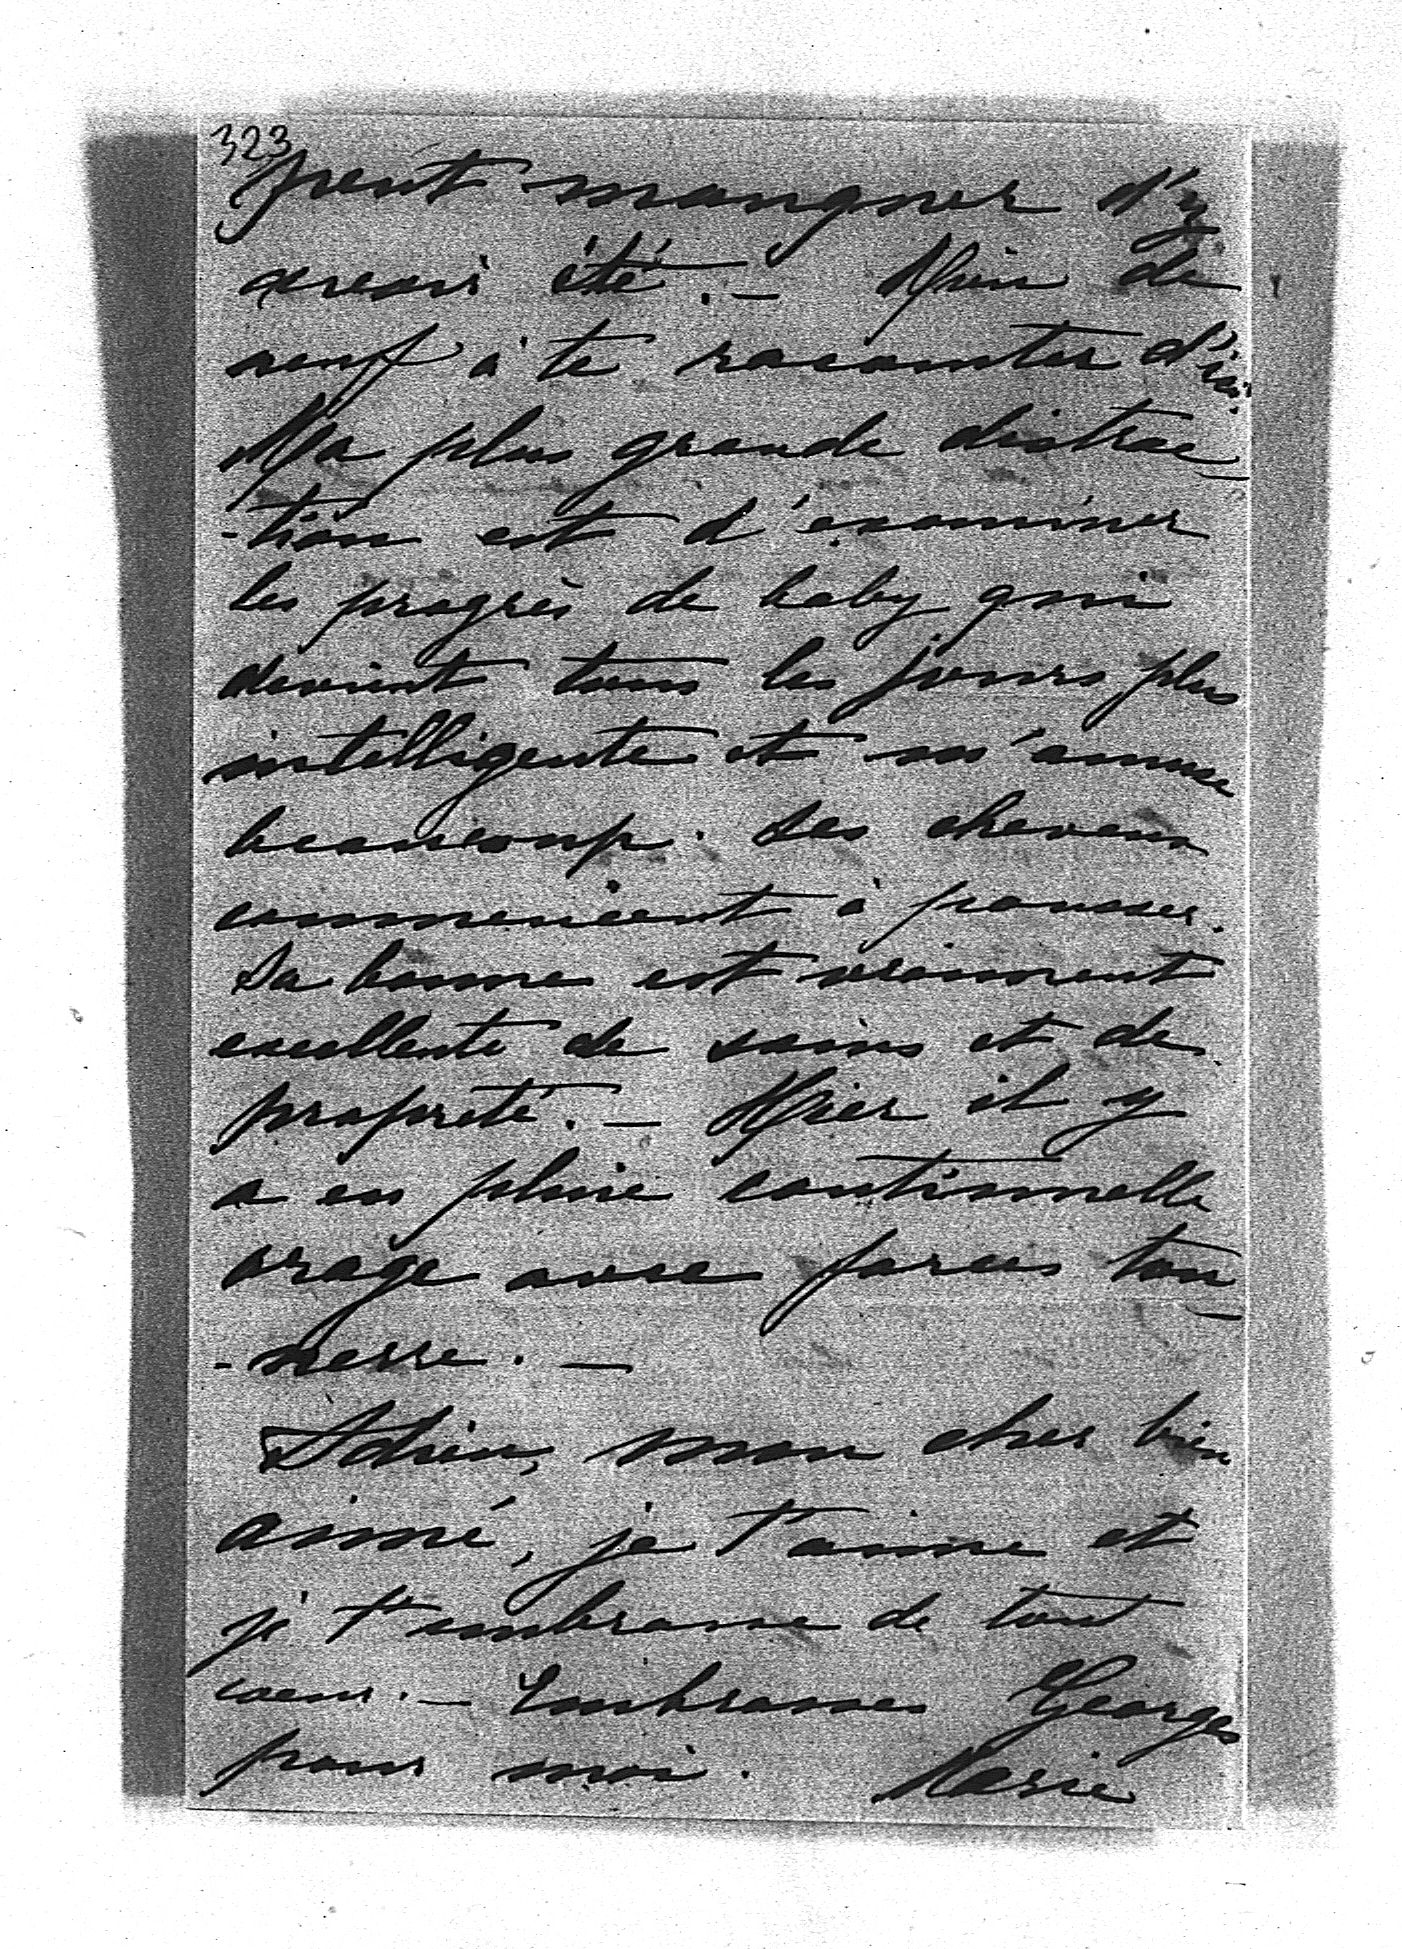 323
peut manquer d'y
avoir été. — Rien de
neuf à te raconter d'ici.
Ma plus grande distrac-
-tion est d'examiner
les progrès de baby qui
devient tous les jours plus
intelligente et m'amuse
beaucoup. Ses cheveux
commencent à pousser.
Sa bonne est vraiment
excellente de soins et de
propreté. — Hier il y
a eu pluie continuelle
orage avec forces ton-
-nerre. —
Adieu, mon cher bien
aimé, je t'aime et
je t'embrasse de tout
coeur. — Embrasses Georges
pour moi. Marie